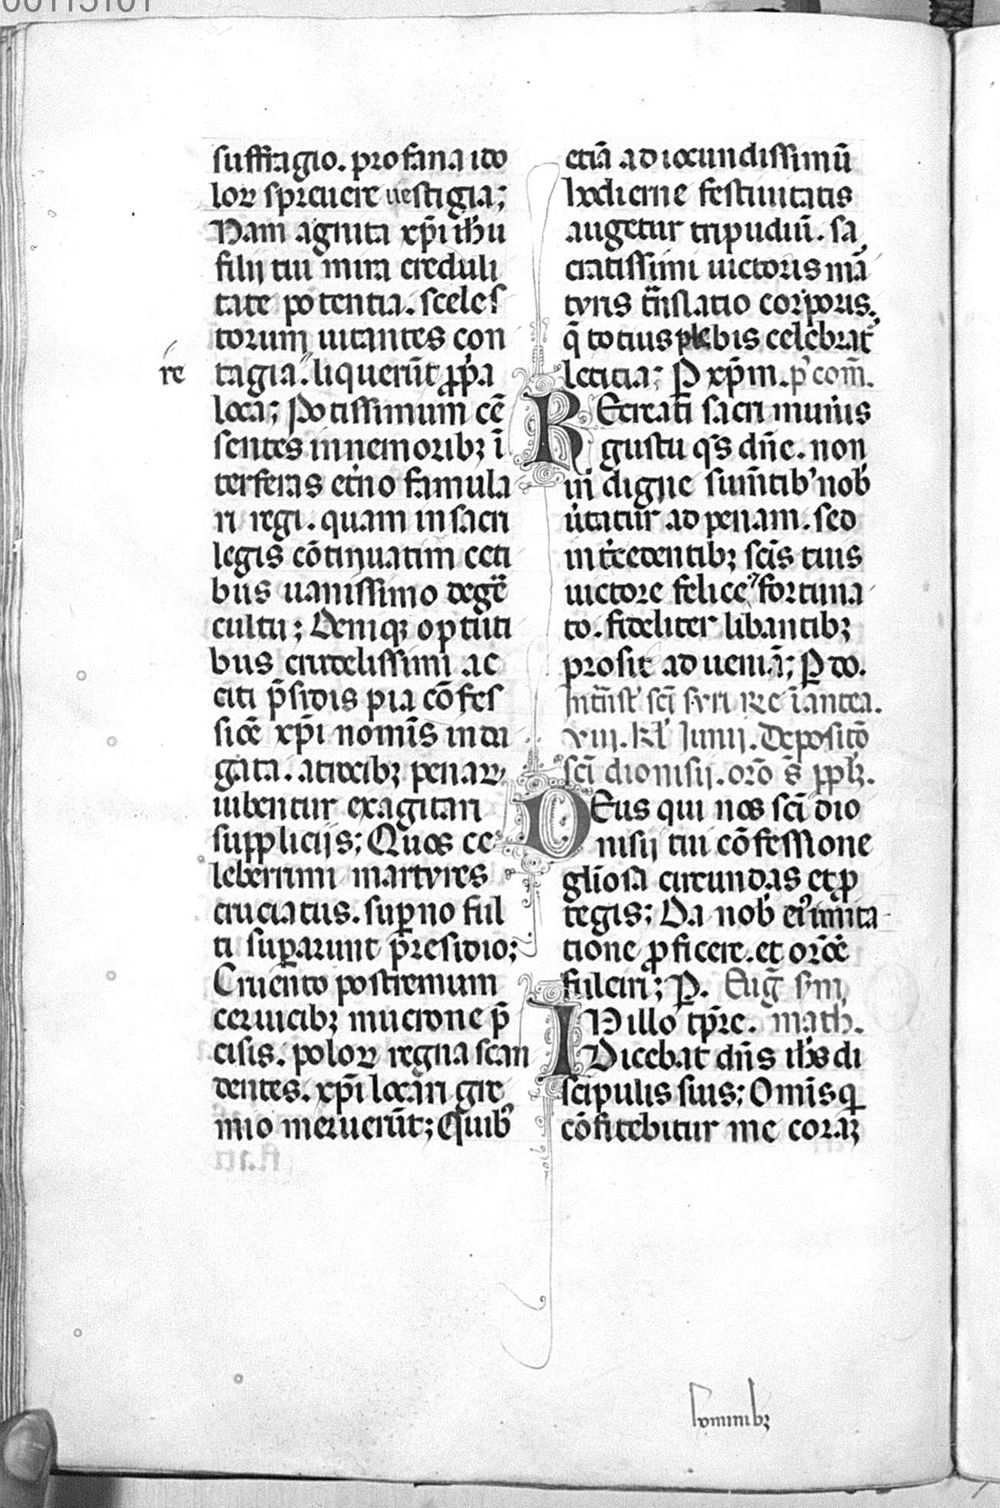 suffragio. profana ido
loꝝ spreuere uestigia;
Nam agnita xp̄i ih̄u
filij tui mira creduli
tate potentia. sceles
torum uitantes con
re
tagia. liquerūt ꝓp̄a
loca; Potissimum cē
sentes in nemoribꝫ ī
terferas et̓no famula
ri regi. quam in sacri
legis cōtinuatim ceti
bus uanissimo degē
cultu; Deniqꝫ optuti
bus crudelissimi ac
citi p̄sidis pia cōfes
siōe xp̄i nomīs inda
gata. atrocibꝫ penaꝝ
iubentur exagitari
supplicijs; Quos ce
leberrimi martyres
cruciatus. suꝑno ful
ti suꝑarunt presidio;
Cruento postremum
ceruicibꝫ mucrone p̄
cisis. poloꝝ regna scan
dentes. xp̄i locari gre
mio meruerūt; Quib̓
etiā ad iocundissimū
hodierne festiuitatis
augetur tripudiū. sa
cratissimi uictoris mā
tyris trāslatio corporis.
q̄ totius plebis celebrat̓
leticia; P xp̄m. p̓ com̄.
REcreati sacri mun̓is
gustu q̄s dn̄e. non
indigne sum̄tib̓ nob̓
u̓tatur ad penam. sed
int̓cedentibꝫ sc̄is tuis
uictore felice ⁊ fortuna
to. fideliter libantibꝫ
prosit ad ueniā; P do.
In trāsl̓ sc̄i syri Re ī antea.
viii. kl̓ Junij. Depositō
sc̄i dionisij. orō s̄ ppl̓ꝫ.
DEus qui nos sc̄i dio
nisij tui cōfessione
gl̄iosa circundas et ꝓ
tegis; Da nob̓ ei̓ imita
tione ꝓficere. et orōe
fulciri; P. Euḡ sm̄
IN illo tp̄re. math̓.
Dicebat dn̄s ih̄s di
scipulis suis; Omīs q̄
cōfitebitur me coraꝫ
hominibꝫ